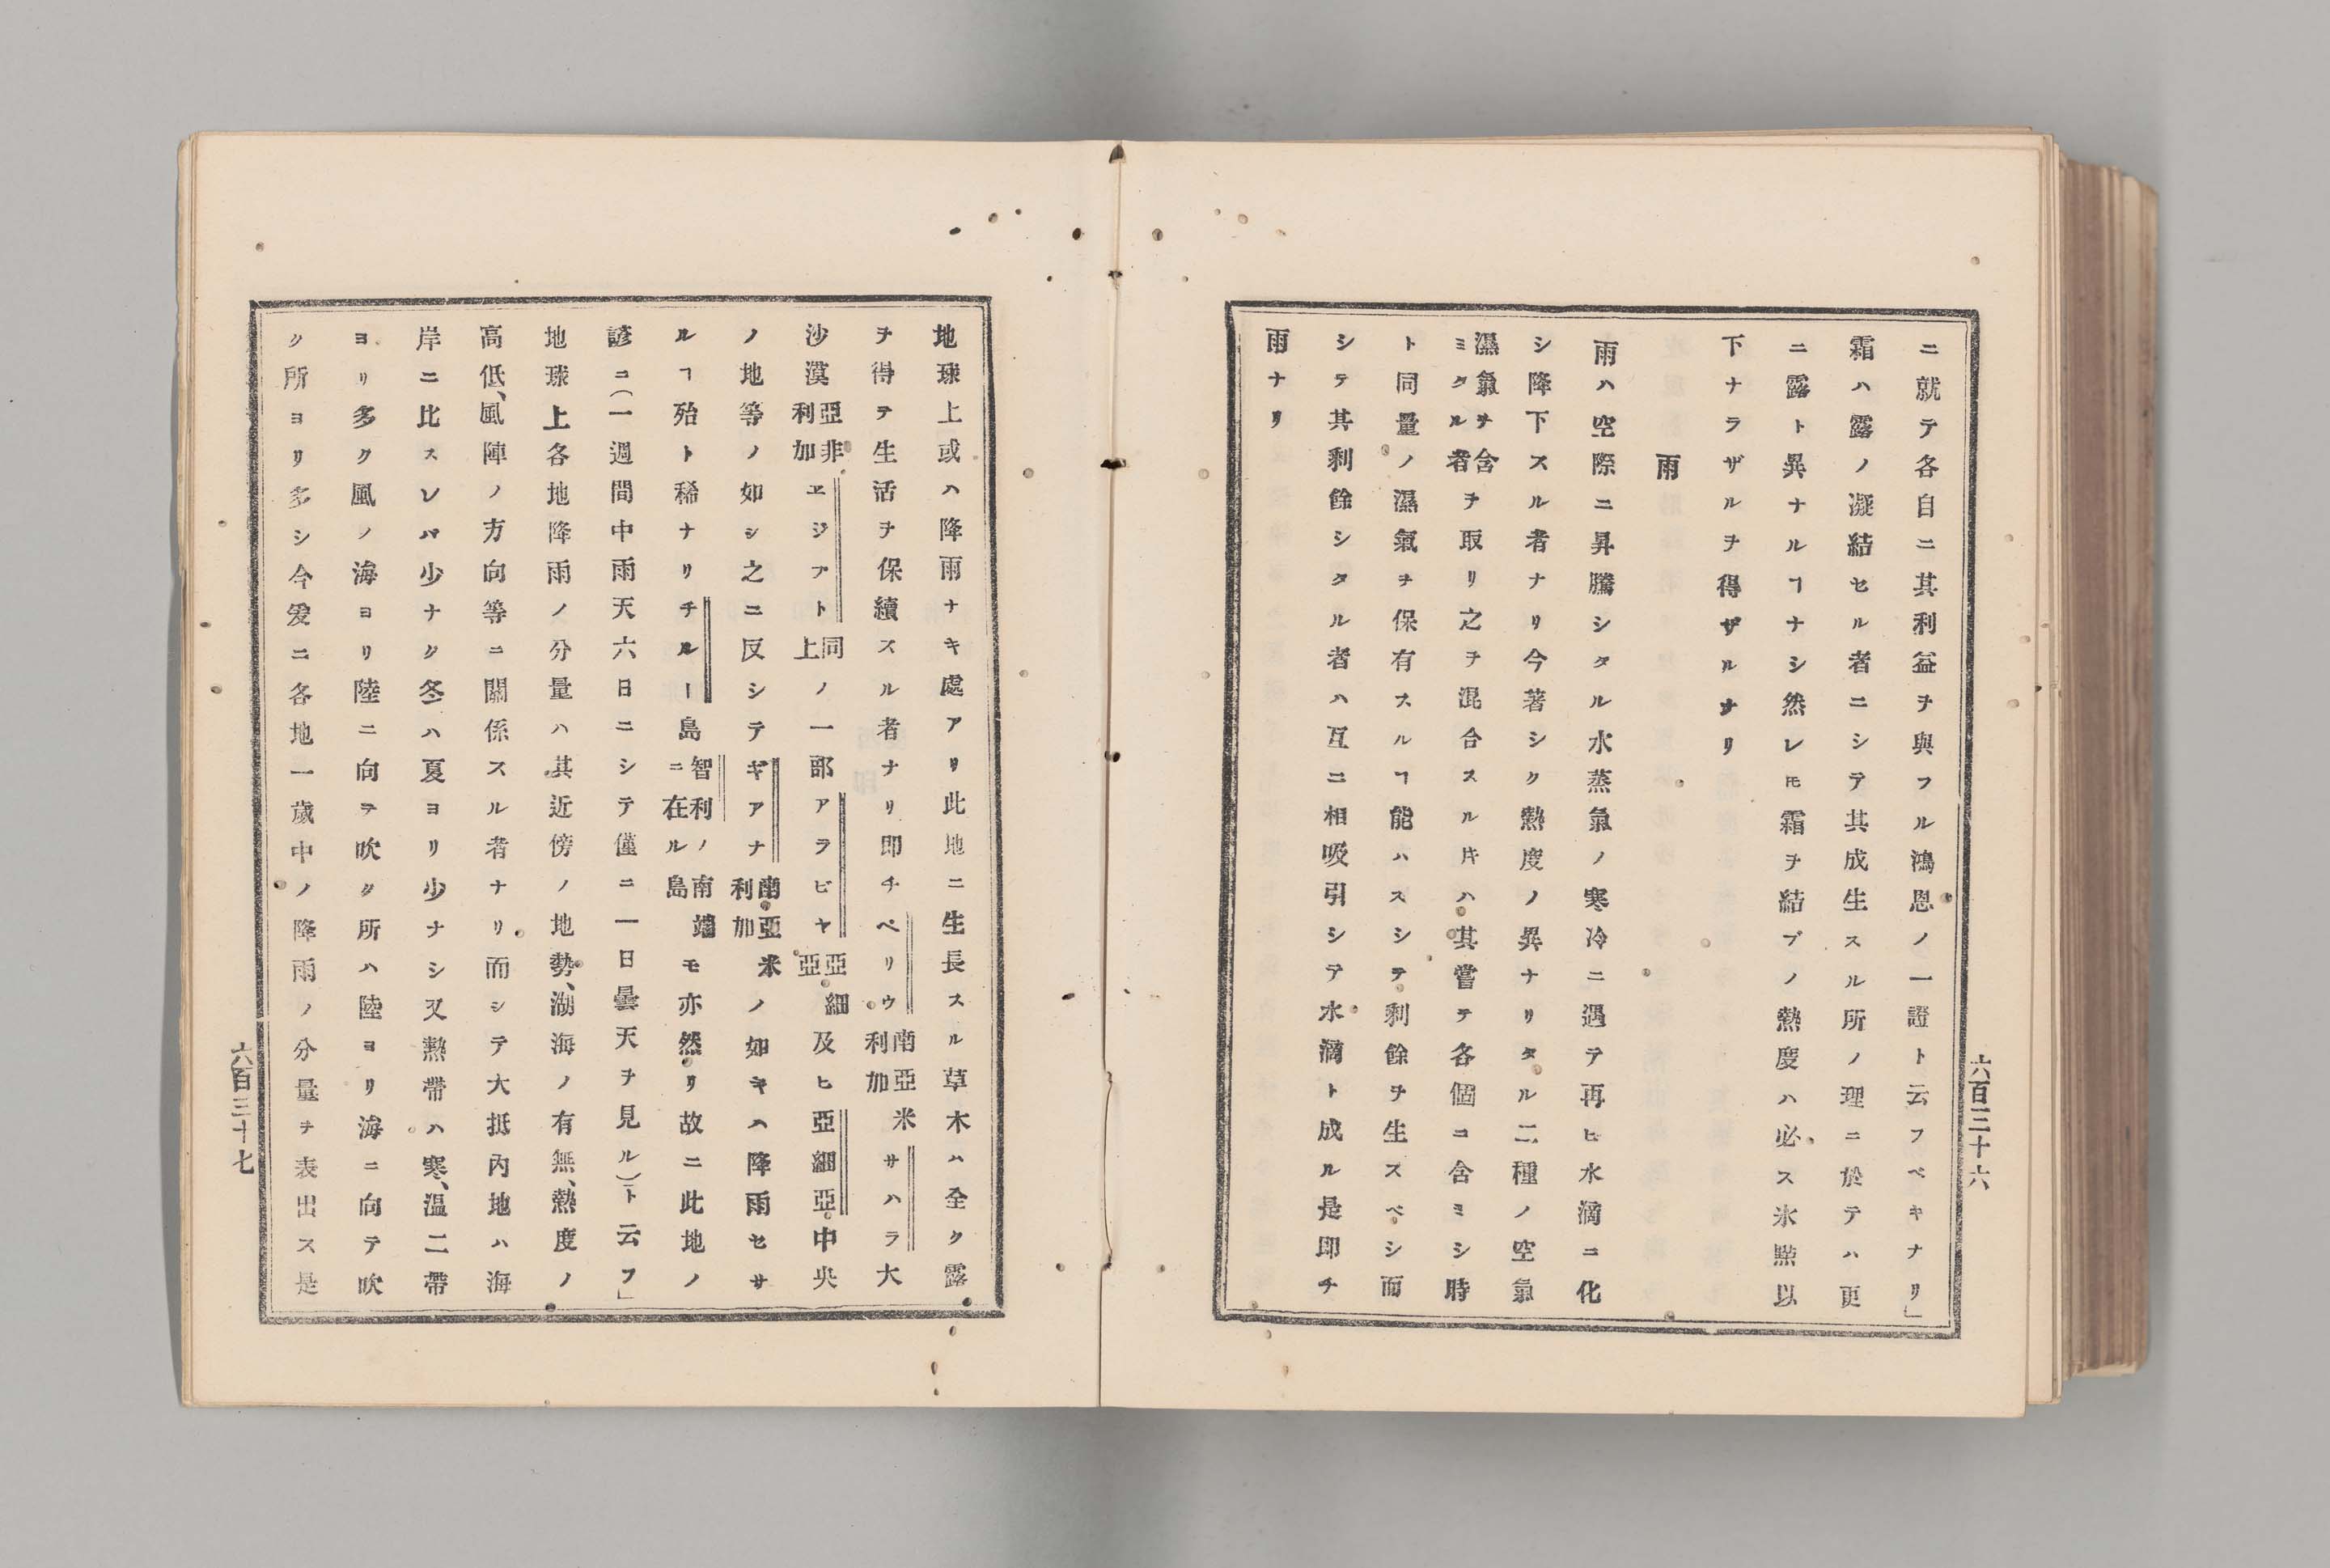 ニ就テ各自ニ其利益ヲ與フル鴻恩ノ一證ト云フベキナリ」
霜ハ露ノ凝結セル者ニシテ其成生スル所ノ理ニ於テハ更
ニ露ト異ナルヿナシ然レ𪜈霜ヲ結ブノ熱度ハ必ス氷點以
下ナラザルヲ得ザルナリ
雨
雨ハ空際ニ昇騰シタル水蒸氣ノ寒冷ニ遇テ再ヒ水滴ニ化
シ降下スル者ナリ今著シク熱度ノ異ナリタル二種ノ空氣
濕氣ヲ含ミタル者ヲ取リ之ヲ混合スル𪜈ハ其嘗テ各個コ含ミシ時
ト同量ノ濕氣ヲ保有スルヿ能ハスシテ剩餘ヲ生スベシ而
シテ其剩餘シタル者ハ互ニ相吸引シテ水滴ト成ル是即チ
雨ナリ
六百三十六
地球上或ハ降雨ナキ處アリ此地ニ生長スル草木ハ全ク露
ヲ得テ生活ヲ保續スル者ナリ即チペリウ南亞米利加サハラ大
沙漠亞非利加ヱジプト同上ノ一部アラビヤ亞細亞及ヒ亞細亞中央
ノ地等ノ如シ之ニ反シテギアナ南亞米利加ノ如キハ降雨セサ
ルヿ殆ト稀ナリチルー島智利ノ南端ニ在ル島モ亦然リ故ニ此地ノ
諺コ(一週間中雨天六日ニシテ僅ニ一日曇天ヲ見ル)ト云フ」
地球上各地降雨ノ分量ハ其近傍ノ地勢、湖海ノ有無、熱度ノ
高低、風陣ノ方向等ニ關係スル者ナリ而シテ大抵內地ハ海
岸ニ比スレバ少ナク冬ハ夏ヨリ少ナシ又熱帶ハ寒、溫二帶
ヨリ多ク風ノ海ヨリ陸ニ向ヲ吹ク所ハ陸ヨリ海ニ向テ吹
ク所ヨリ多シ今爰ニ各地一歲中ノ降雨ノ分量ヲ表出ス是
六百三十七